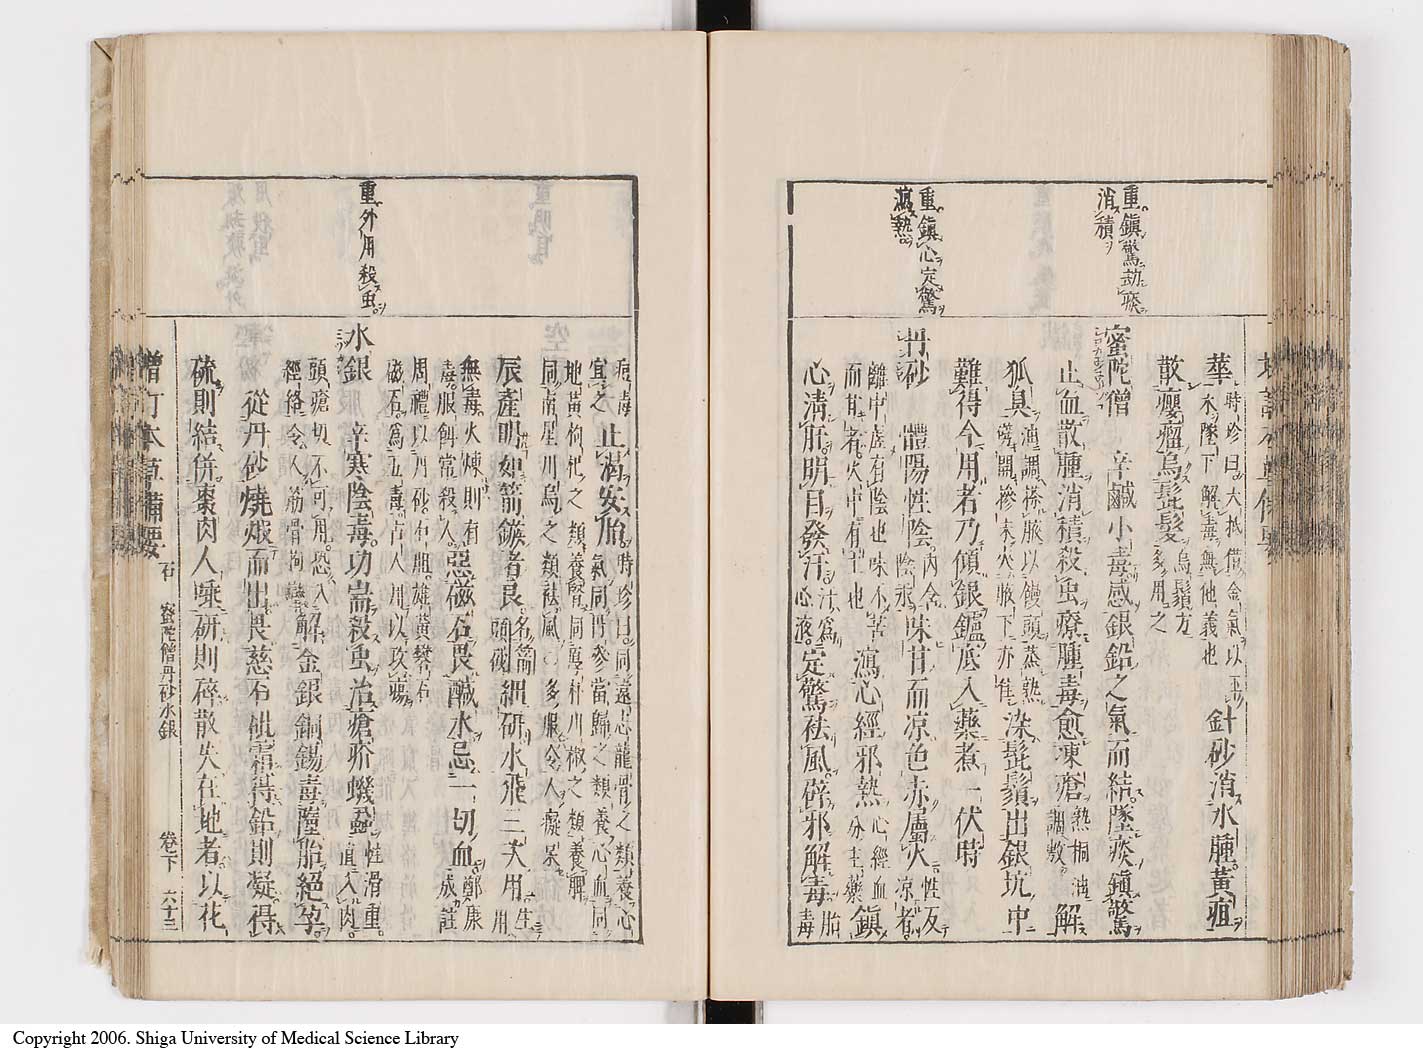 重鎮驚劫痰
消積
重鎮心定驚
瀉熱
華 時珍曰大抵借金氣以
水墜下解毒無他義也
針砂消水腫黃疸
散癭瘤烏髭髮 烏鬚方
多用之
蜜陀僧 辛鹹小毒感銀鉛之氣而結墜痰鎮驚
止血散腫消積殺虫療腫毒愈凍瘡 熱桐油
調敷 解
狐臭 油調搽腋以饅頭蒸熱
劈開摻末夾腋下亦佳 染髭鬚出銀坑中
難得今用者乃傾銀鑪底入藥煮一伏時
丹砂 體陽性陰 內含
陰汞 味甘而凉色赤屬火 性反
凉者
離中虛有陰也味不苦
而甘者火中有土也 瀉心經邪熱 心經血
分主藥 鎮
心清肝明目發汗 汗為
心液 定驚祛風辟邪解毒 胎
毒
重外用殺虫
痘毒
宜之 止渴安胎 時珍曰同遠志龍骨之類養心
氣同丹參當歸之類養心血同
地黃枸杞之類養腎同厚朴川椒之類養脾
同南星川烏之類祛風 多服令人癡呆
辰產明如箭鏃者良 名箭
頭砂 細研水飛三次用 生
用
無毒火煉則有
毒服餌常殺人 惡磁石畏鹹水忌一切血 鄭康
成註
周禮以丹砂石胆雄黃礬石
磁石為五毒古人用以攻瘍
水銀 辛寒陰毒功耑殺虫治瘡疥蟣蝨 性滑重
直入肉
頭瘡切不可用恐入
經絡令人筋骨拘攣 解金銀銅錫毒墮胎絕孕
從丹砂燒煅而出畏慈石砒霜得鉛則凝得
硫則結併棗肉人唾研則碎散失在地者以花
增訂本草備要 石 蜜陀僧丹砂水銀 卷下 六十三
Copyright 2006. Shiga University of Medical Science Library